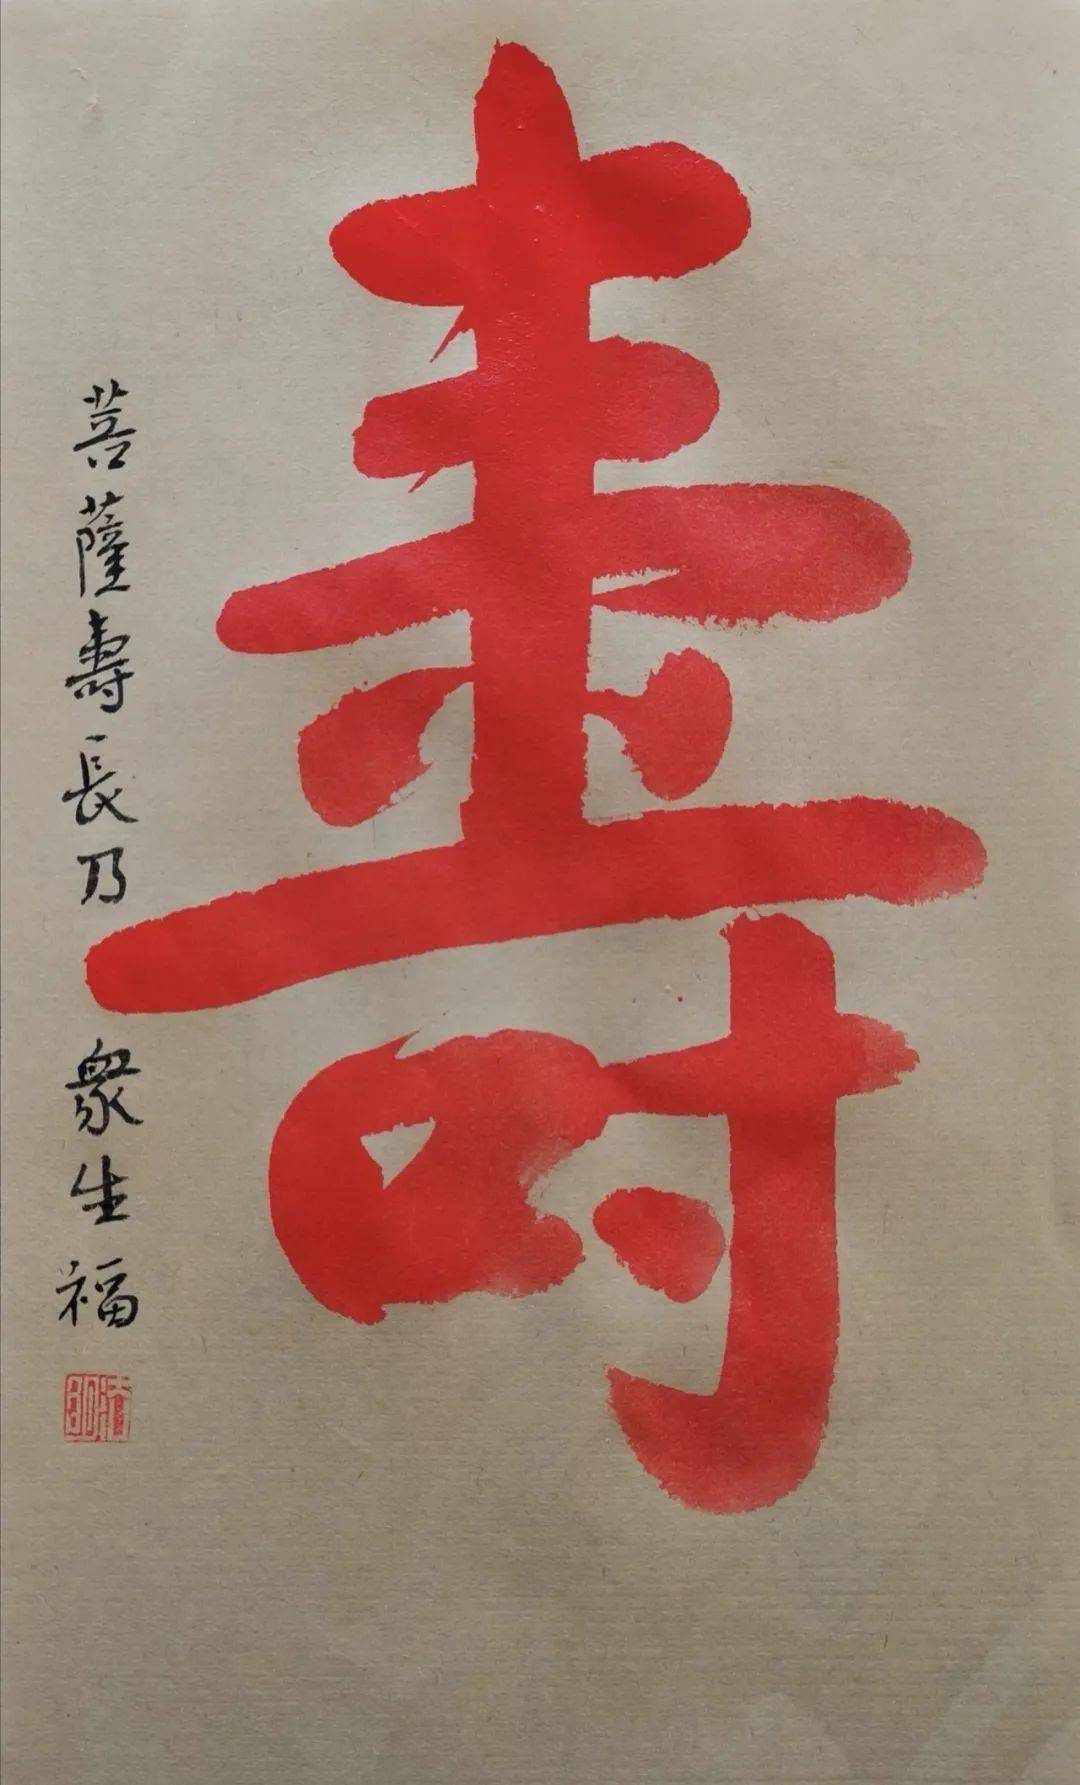 壽
菩薩壽長乃
衆生福